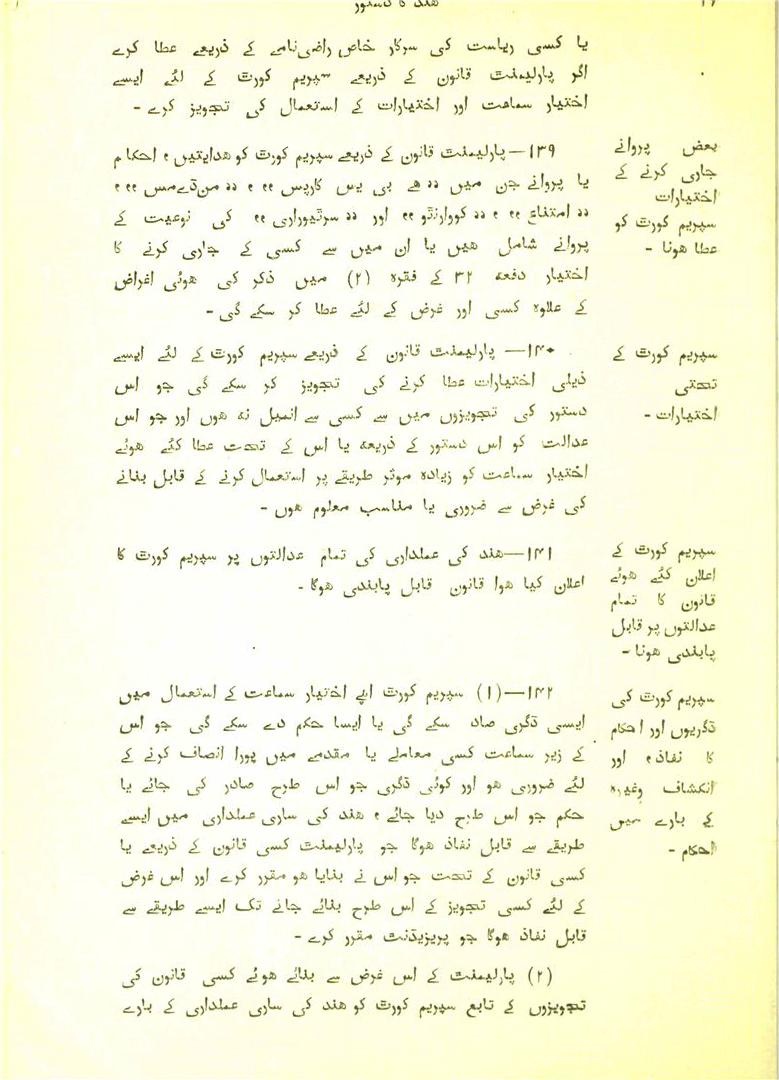 ہند کا دستور
یا کسی ریاست کی سرکار خاص راضی‌نامے کے ذریعے عطا کرے
اگر پارلیمنٹ قانون کے ذریعے سپریم کورٹ کے لئے ایسے
اختیار سماعت اور اختیارات کے استعمال کی تجویز کرے -
بعض پروانے
جاری کرنے کے
اختیارات
سپریم کورٹ کو
عطا ہونا -
۱۳۹—پارلیمنٹ قانون کے ذریعے سپریم کورٹ کو ہدایتیں، احکام
یا پروانے جن میں ”ہے بی یس کارپس“، ”من‌ڈےمس“،
”امتناع“، ”کووارنٹو“ اور ”سرٹیوراری“ کی نوعیت کے
پروانے شامل ہیں یا ان میں سے کسی کے جاری کرنے کا
اختیار دفعہ ۳۲ کے فقرہ (۲) میں ذکر کی ہوئی اغراض
کے علاوہ کسی اور غرض کے لئے عطا کر سکے گی -
سپریم کورٹ کے
تحتی
اختیارات -
۱۴۰—پارلیمنٹ قانون کے ذریعے سپریم کورٹ کے لئے ایسے
ذیلی اختیارات عطا کرنے کی تجویز کر سکے گی جو اس
دستور کی تجویزوں میں سے کسی سے انمیل نہ ہوں اور جو اس
عدالت کو اس دستور کے ذریعہ یا اس کے تحت عطا کئے ہوئے
اختیار سماعت کو زیادہ موثر طریقے پر استعمال کرنے کے قابل بنانے
کی غرض سے ضروری یا مناسب معلوم ہوں -
سپریم کورٹ کے
اعلان کئے ہوئے
قانون کا تمام
عدالتوں پر قابل
پابندی ہونا -
۱۴۱—ہند کی عملداری کی تمام عدالتوں پر سپریم کورٹ کا
اعلان کیا ہوا قانون قابل پابندی ہوگا -
سپریم کورٹ کی
ڈگریوں اور احکام
کا نفاذ، اور
انکشاف وغیرہ
کے بارے میں
احکام -
۱۴۲—(۱) سپریم کورٹ اپنے اختیار سماعت کے استعمال میں
ایسی ڈگری صاد سکے گی یا ایسا حکم دے سکے گی جو اس
کے زیر سماعت کسی معاملے یا مقدمے میں پورا انصاف کرنے کے
لئے ضروری ہو اور کوئی ڈگری جو اس طرح صادر کی جائے یا
حکم جو اس طرح دیا جائے، ہند کی ساری عملداری میں ایسے
طریقے سے قابل نفاذ ہوگا جو پارلیمنٹ کسی قانون کے ذریعے یا
کسی قانون کے تحت جو اس نے بنایا ہو مقرر کرے اور اس غرض
کے لئے کسی تجویز کے اس طرح بنائے جانے تک ایسے طریقے سے
قابل نفاذ ہوگا جو پریزیڈنٹ مقرر کرے -
(۲) پارلیمنٹ کے اس غرض سے بنائے ہوئے کسی قانون کی
تجویزوں کے تابع سپریم کورٹ کو ہند کی ساری عملداری کے بارے